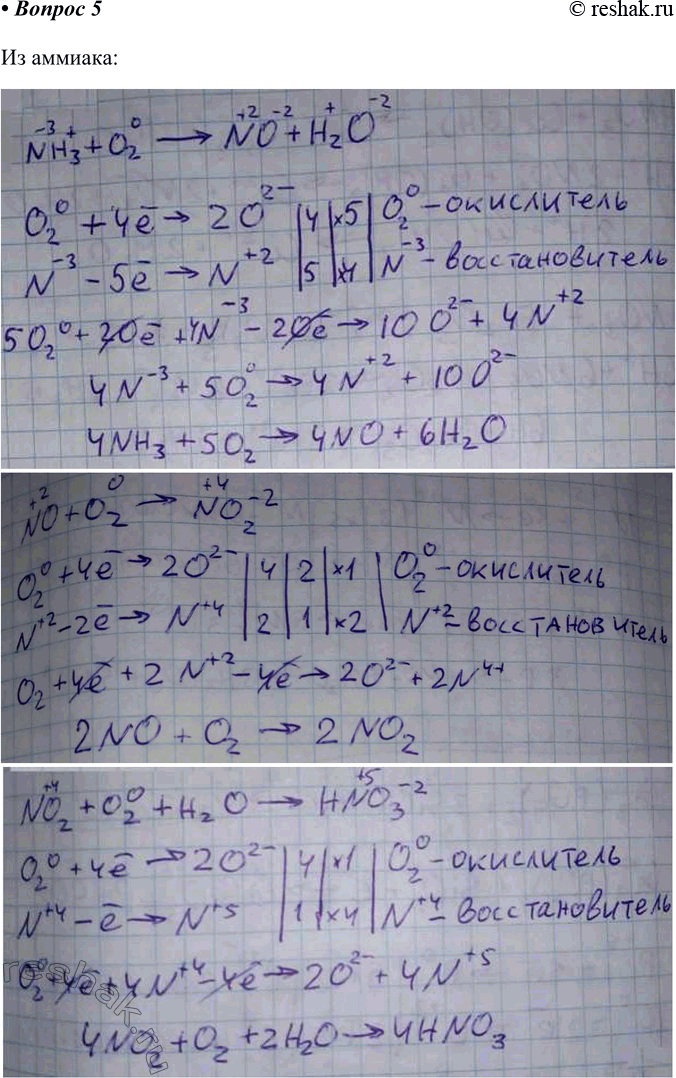 • Вопрос 5
© reshak.ru
Из аммиака:
N⁻³H₃⁺ + O₂⁰ → N⁺²O⁻² + H₂⁺O⁻²
O₂⁰ + 4ē → 2O²⁻ | 4 | ×5 | O₂⁰ – окислитель
N⁻³ – 5ē → N⁺² | 5 | ×4 | N⁻³ – восстановитель
5O₂⁰ + 20ē + 4N⁻³ – 20ē → 10O²⁻ + 4N⁺²
4N⁻³ + 5O₂⁰ → 4N⁺² + 10O²⁻
4NH₃ + 5O₂ → 4NO + 6H₂O
N⁺²O + O₂⁰ → N⁺⁴O₂⁻²
O₂⁰ + 4ē → 2O²⁻ | 4 | 2 | ×1 | O₂⁰ – окислитель
N⁺² – 2ē → N⁺⁴ | 2 | 1 | ×2 | N⁺² – восстановитель
O₂ + 4ē + 2N⁺² – 4ē → 2O²⁻ + 2N⁴⁺
2NO + O₂ → 2NO₂
N⁺⁴O₂ + O₂⁰ + H₂O → HN⁺⁵O₃⁻²
O₂⁰ + 4ē → 2O²⁻ | 4 | ×1 | O₂⁰ – окислитель
N⁺⁴ – ē → N⁺⁵ | 1 | ×4 | N⁺⁴ – восстановитель
O₂⁰ + 4ē + 4N⁺⁴ – 4ē → 2O²⁻ + 4N⁺⁵
4NO₂ + O₂ + 2H₂O → 4HNO₃
reshak.ru